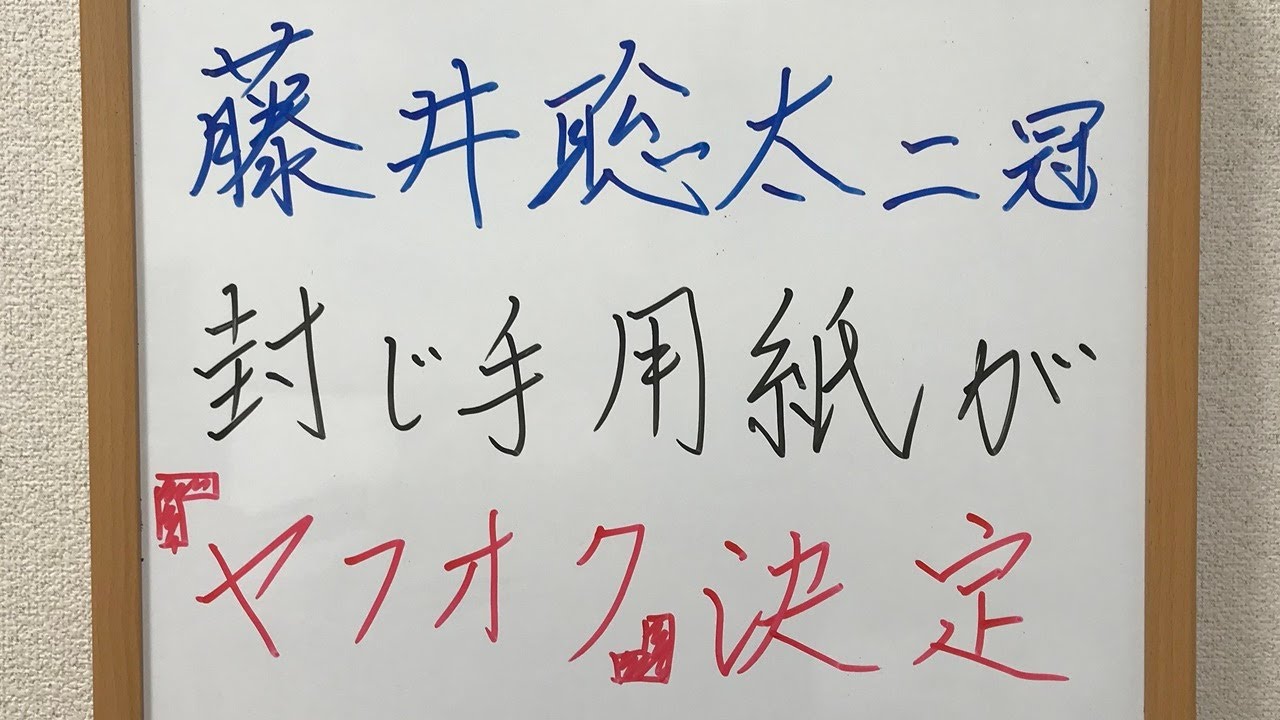 藤井聡太二冠
封じ手用紙が
『ヤフオク』決定